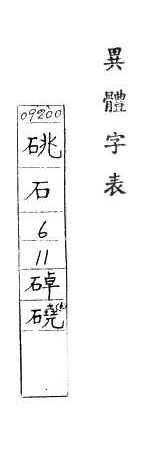 異體字表
09200
硗
石
6
11
䂽
磽